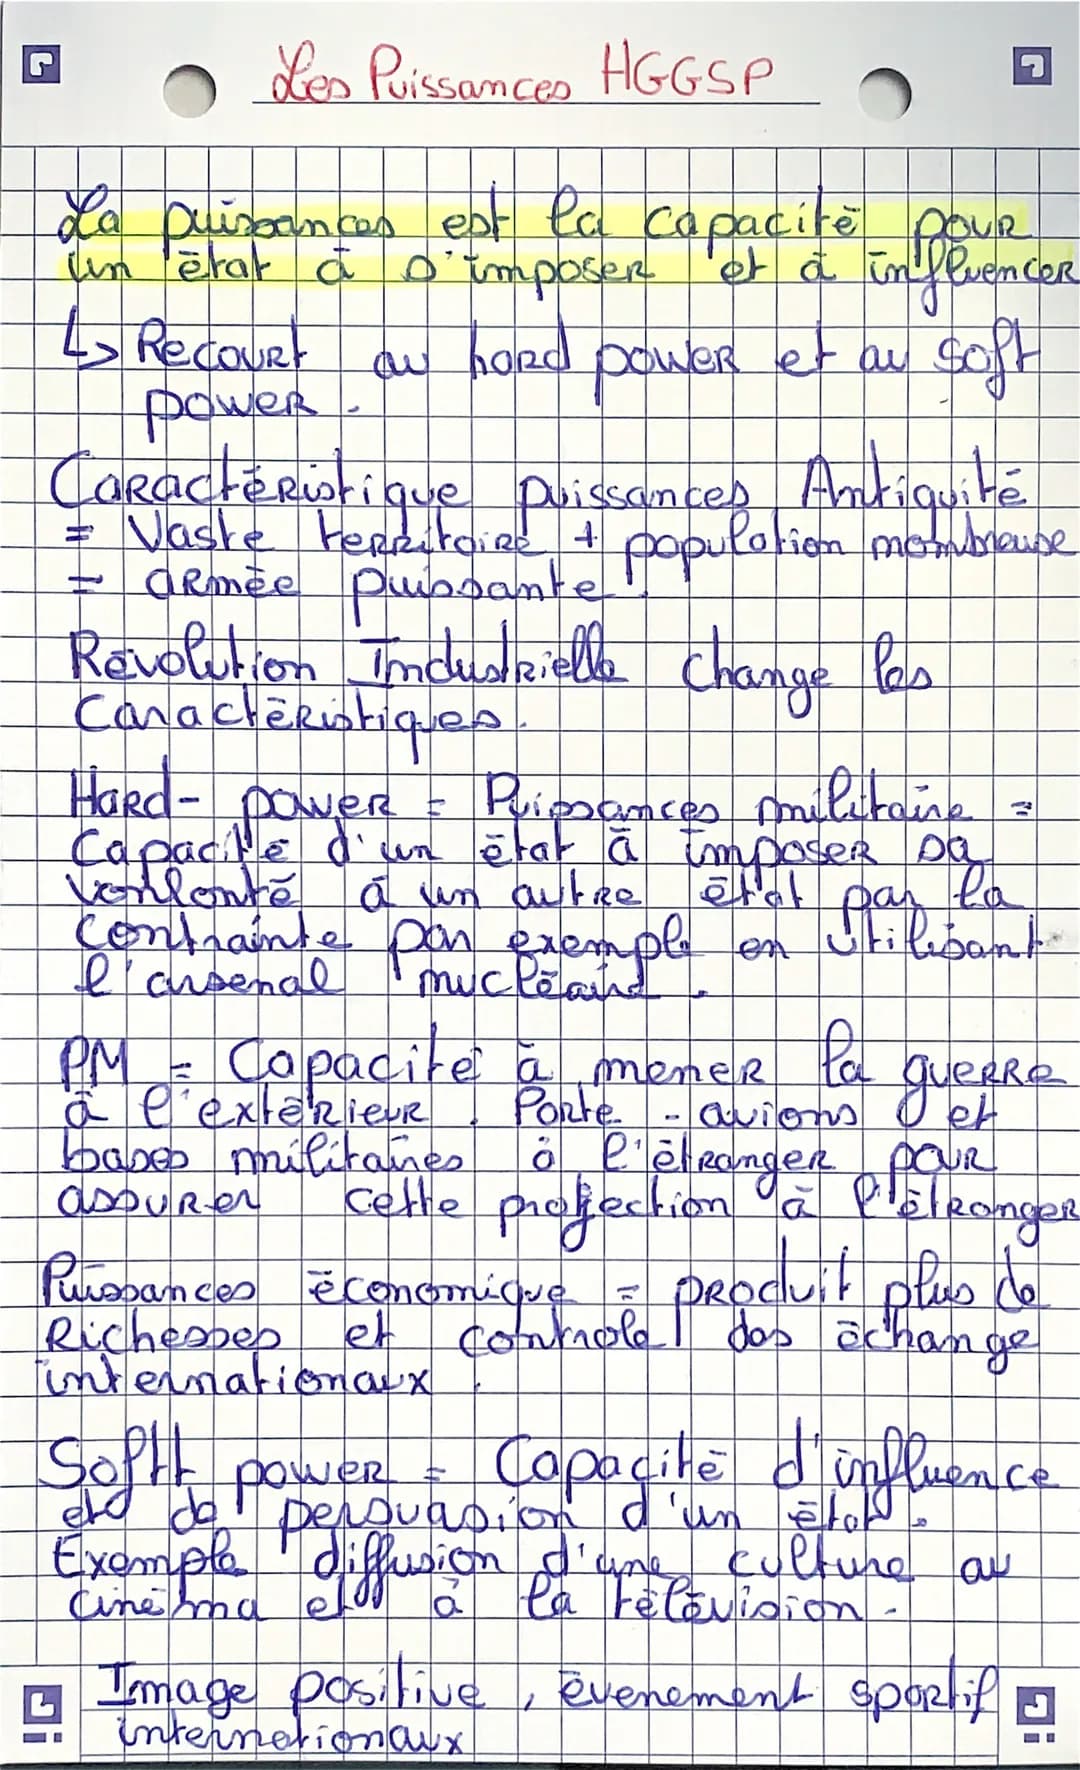 Les Puissances HGGSP
La puissances est la capacité pour
un état à s'imposer et à influencer
↳ Recourt au hard power et au soft
power.
Caractéristique puissances Antiquité
= Vaste territoire + population nombreuse
= armée puissante.
Révolution Industrielle change les
Caractéristiques.
Hard-power = Puissances militaire =
Capacité d'un état à imposer sa
vonlonté à un autre état par la
contrainte par exemple en utilisant
l'arsenal nucléaire.
PM = Capacité à mener la guerre
à l'extérieur. Porte-avions et
bases militaires à l'étranger pour
assurer cette projection à l'étranger
Puissances économique = produit plus de
Richesses et controle des échange
internationaux.
Softt power = Capacité d'influence
et de persuasion d'un état.
Exemple diffusion d'une culture au
cinéma et à la télévision.
Image positive, évenement sportif
internationaux